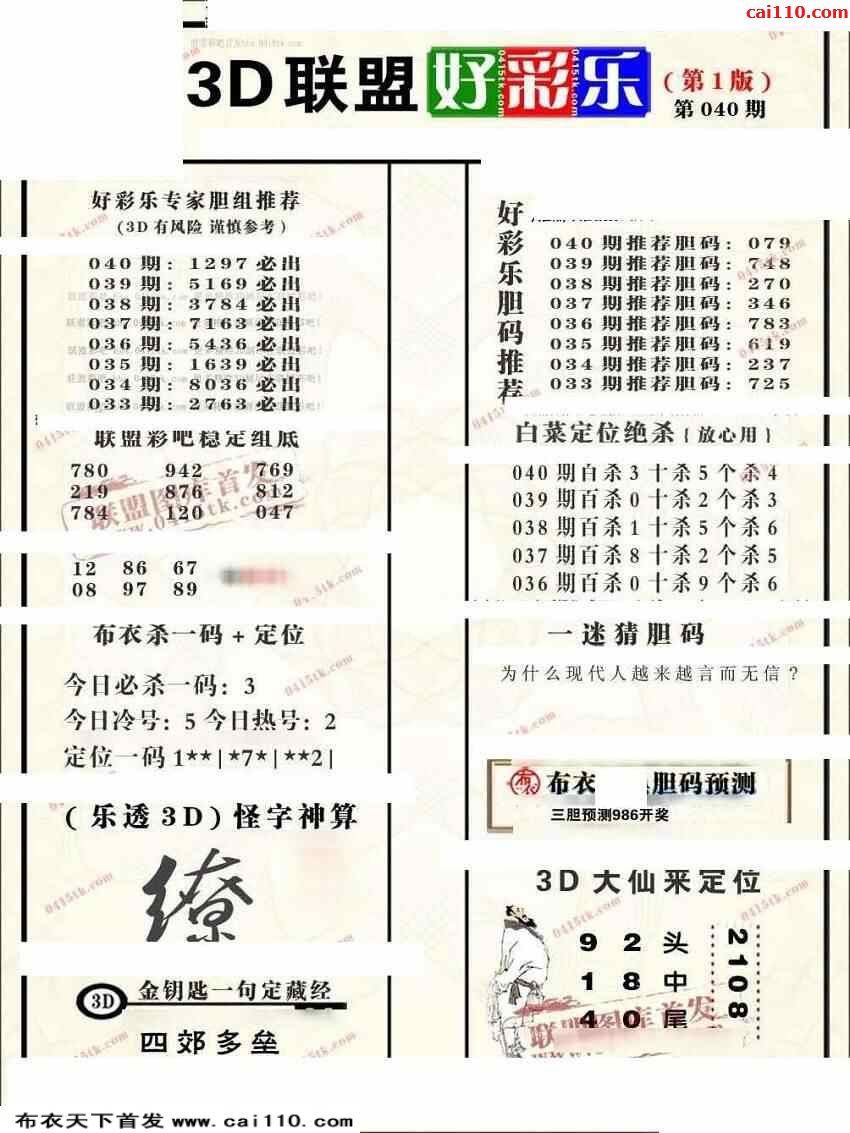 cai110.com
3D联盟好彩乐
(第1版)
第040期
好彩乐专家胆组推荐
(3D有风险 谨慎参考)
040期: 1297必出
039期: 5169必出
038期: 3784必出
037期: 7163必出
036期: 5436必出
035期: 1639必出
034期: 8036必出
033期: 2763必出
联盟彩吧稳定组底
780 942 769
219 876 812
784 120 047
12 86 67
08 97 89
布衣杀一码+定位
今日必杀一码: 3
今日冷号: 5 今日热号: 2
定位一码1**|*7*|**2|
(乐透3D)怪字神算
缭
3D 金钥匙一句定藏经
四郊多垒
好彩乐胆码推荐
040期推荐胆码: 079
039期推荐胆码: 748
038期推荐胆码: 270
037期推荐胆码: 346
036期推荐胆码: 783
035期推荐胆码: 619
034期推荐胆码: 237
033期推荐胆码: 725
白菜定位绝杀{放心用}
040期百杀3十杀5个杀4
039期百杀0十杀2个杀3
038期百杀1十杀5个杀6
037期百杀8十杀2个杀5
036期百杀0十杀9个杀6
一迷猜胆码
为什么现代人越来越言而无信?
布衣 胆码预测
三胆预测986开奖
3D大仙来定位
9 2 头
1 8 中
4 0 尾
2108
联盟图库首发
www.0415tk.com
布衣天下首发 www.cai110.com